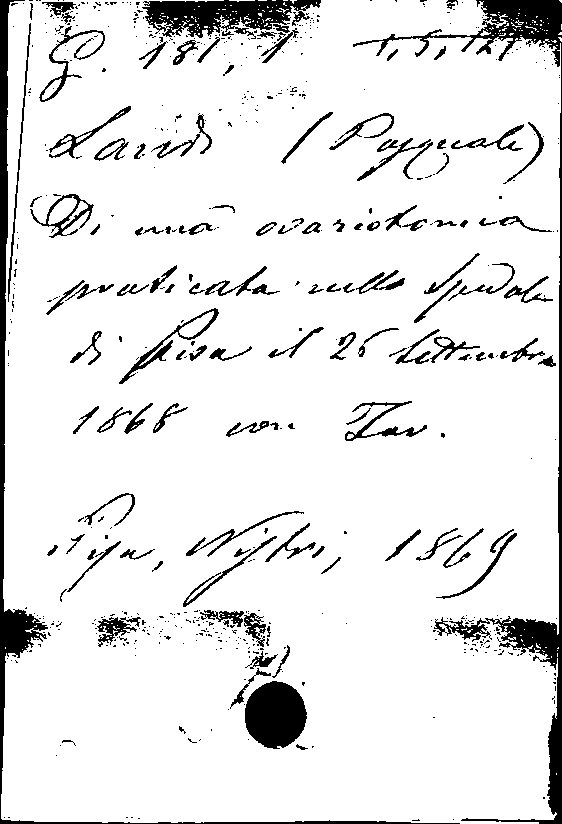 G. 181, 1 1, 5, 127
Landi (Pasquale)
Di una ovariotomia
praticata nello Spedale
di Pisa il 25 Settembre
1868 con Tav.
Pisa, Nistri, 1869